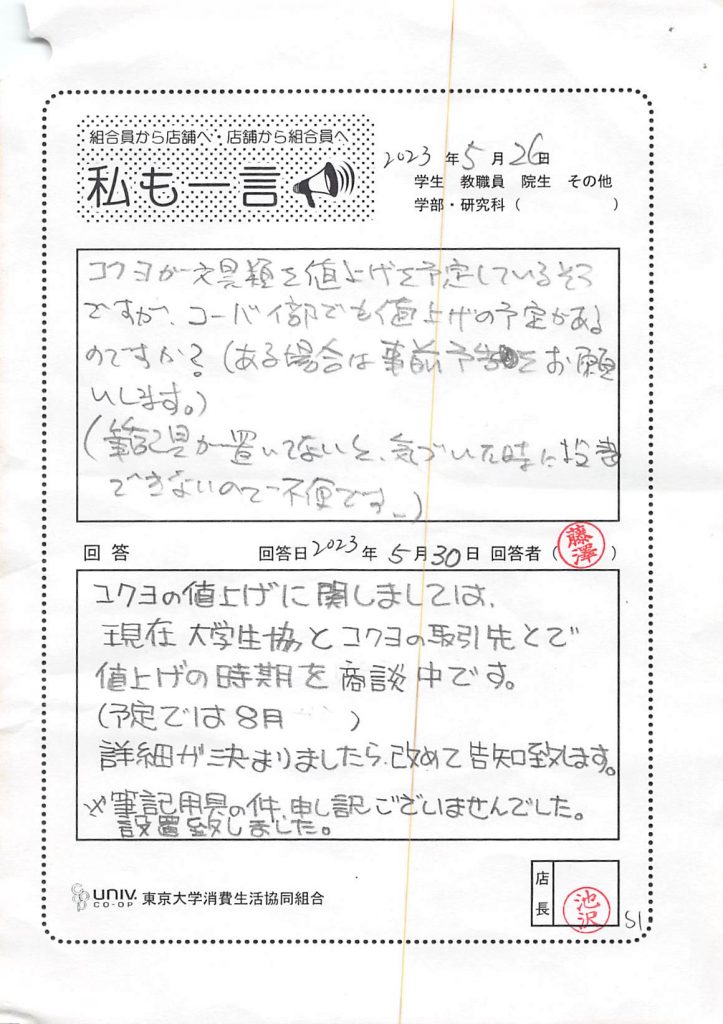 組合員から店舗へ・店舗から組合員へ
私も一言
2023 年 5 月 26 日
学生 教職員 院生 その他
学部・研究科 ( )
コクヨが文具類を値上げを予定しているそう
ですが、コーバイ部でも値上げの予定がある
のですか？(ある場合は事前予告をお願
いします。)
(筆記具が置いてないと、気づいた時に投書
できないので不便です。)
回答 回答日 2023 年 5 月 30 日 回答者 ( 藤澤 )
コクヨの値上げに関しましては、
現在 大学生協とコクヨの取引先とで
値上げの時期を商談中です。
(予定では8月 )
詳細が決まりましたら、改めて告知致します。
※筆記用具の件、申し訳ございませんでした。
設置致しました。
UNIV. CO-OP 東京大学消費生活協同組合
店長 池沢
51